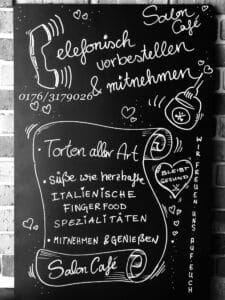 Salon
Café
Telefonisch
vorbestellen
& mitnehmen
0176/3179026
• Torten aller Art
• süße wie herzhafte
ITALIENISCHE
FINGERFOOD
SPEZIALITÄTEN
• MITNEHMEN & GENIEßEN
Salon Café
BLEIBT
GESUND
WIR FREUEN UNS AUF EUCH